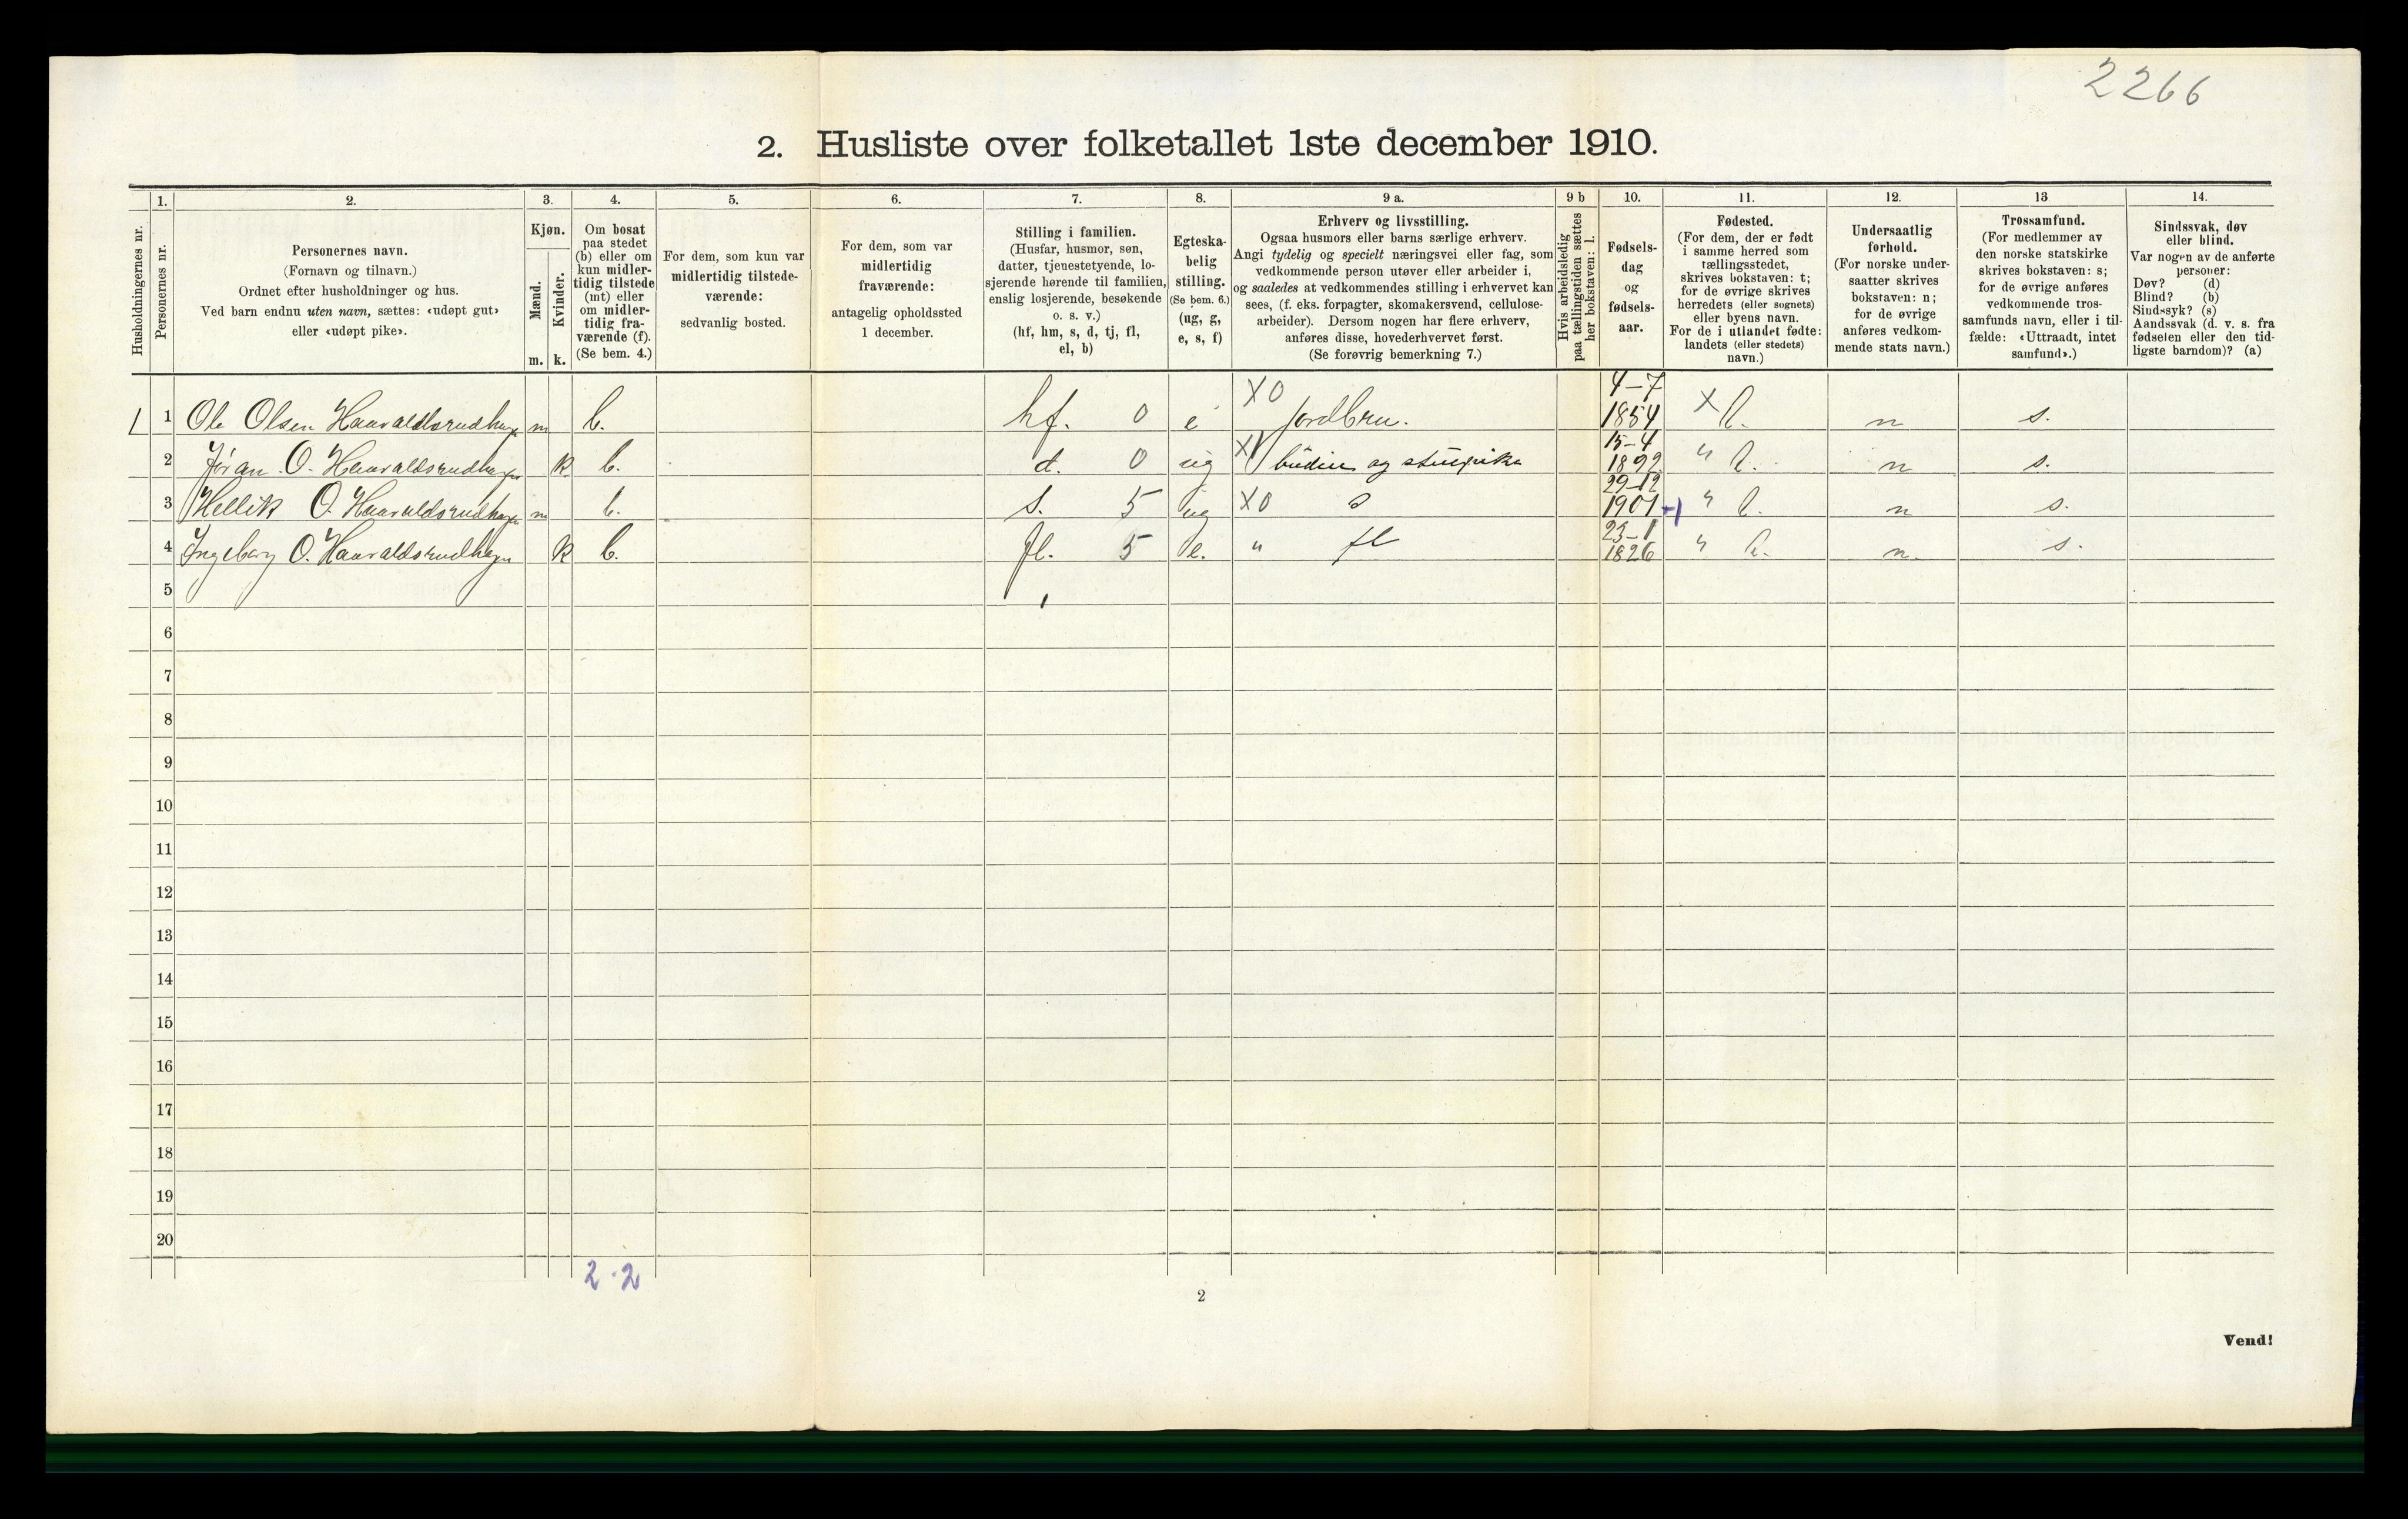 2266
2. Husliste over folketallet 1ste december 1910.
Husholdningernes nr.
1.
Personernes nr.
2.
Personernes navn.
(Fornavn og tilnavn.)
Ordnet efter husholdninger og hus.
Ved barn endnu uten navn, sættes: «udøpt gut»
eller «udøpt pike».
3.
Kjøn.
Mænd.
Kvinder.
m. k.
4.
Om bosat
paa stedet
(b) eller om
kun midler-
tidig tilstede
(mt) eller
om midler-
tidig fra-
værende (f).
(Se bem. 4.)
5.
For dem, som kun var
midlertidig tilstede-
værende:
sedvanlig bosted.
6.
For dem, som var
midlertidig
fraværende:
antagelig opholdssted
1 december.
7.
Stilling i familien.
(Husfar, husmor, søn,
datter, tjenestetyende, lo-
sjerende hørende til familien,
enslig losjerende, besøkende
o. s. v.)
(hf, hm, s, d, tj, fl,
el, b)
8.
Egteska-
belig
stilling.
(Se bem. 6.)
(ug, g,
e, s, f)
9 a.
Erhverv og livsstilling.
Ogsaa husmors eller barns særlige erhverv.
Angi tydelig og specielt næringsvei eller fag, som
vedkommende person utøver eller arbeider i,
og saaledes at vedkommendes stilling i erhvervet kan
sees, (f. eks. forpagter, skomakersvend, cellulose-
arbeider). Dersom nogen har flere erhverv,
anføres disse, hovederhvervet først.
(Se forøvrig bemerkning 7.)
9 b
Hvis arbeidsledig
paa tællingstiden sættes
her bokstaven: l.
10.
Fødsels-
dag
og
fødsels-
aar.
11.
Fødested.
(For dem, der er født
i samme herred som
tællingsstedet,
skrives bokstaven: t;
for de øvrige skrives
herredets (eller sognets)
eller byens navn.
For de i utlandet fødte:
landets (eller stedets)
navn.)
12.
Undersaatlig
forhold.
(For norske under-
saatter skrives
bokstaven: n;
for de øvrige
anføres vedkom-
mende stats navn.)
13
Trossamfund.
(For medlemmer av
den norske statskirke
skrives bokstaven: s;
for de øvrige anføres
vedkommende tros-
samfunds navn, eller i til-
fælde: «Uttraadt, intet
samfund».)
14.
Sindssvak, døv
eller blind.
Var nogen av de anførte
personer:
Døv? (d)
Blind? (b)
Sindssyk? (s)
Aandssvak (d. v. s. fra
fødselen eller den tid-
ligste barndom)? (a)
1 Ole Olsen Haavaldsrudhagen m b. hf. 0 e X0 jordbru. 4-7 1854 X n s.
2 Jøran O. Haavaldsrudhagen k b. d. 0 ug budeie og stuepike 15-4 1892 " n s.
3 Hellik O. Haavaldsrudhagen m b. s. 5 ug X0 29-12 1901 " n s.
4 Ingeborg O. Haavaldsrudhagen k b. fl. 5 e. " fl 23-1 1826 " n. s.
5
6
7
8
9
10
11
12
13
14
15
16
17
18
19
20
2·2
2
Vend!